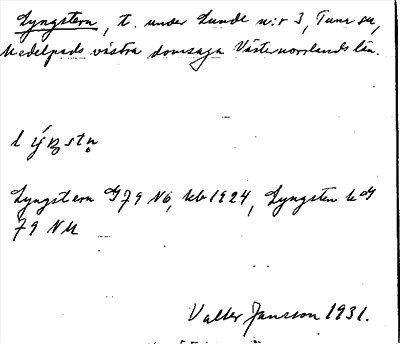 Lyngstern, t. under Lunde n:r 3, Tuna sn,
Medelpads västra domsaga Västernorrlands län.
Lyngstern G 79 NÖ, kb 1924, Lyngsten k G
79 NU
Valter Jansson 1931.